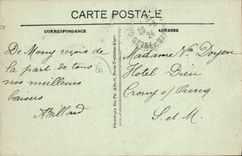 CARTE POSTALE
CORRESPONDANCE
ADRESSE
De Mouy reçois de
la part de tous
nos meilleurs
baisers
Madame Vve Doyen
Hotel Dieu
Crouy s/ Ourcq
S. et M.